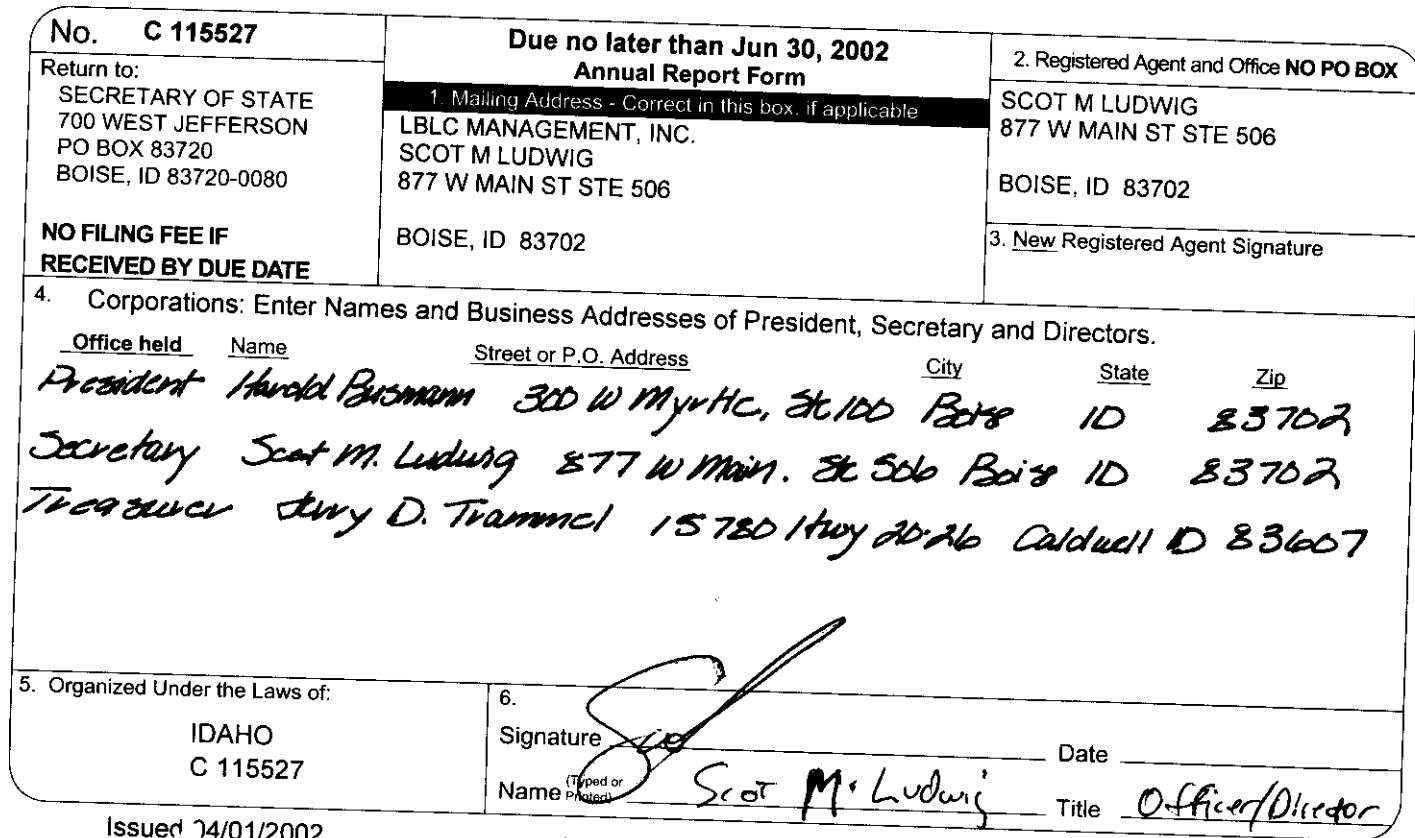 No. C 115527
Return to:
SECRETARY OF STATE
700 WEST JEFFERSON
PO BOX 83720
BOISE, ID 83720-0080
NO FILING FEE IF
RECEIVED BY DUE DATE
Due no later than Jun 30, 2002
Annual Report Form
1. Mailing Address - Correct in this box, if applicable
LBLC MANAGEMENT, INC.
SCOT M LUDWIG
877 W MAIN ST STE 506
BOISE, ID 83702
2. Registered Agent and Office NO PO BOX
SCOT M LUDWIG
877 W MAIN ST STE 506
BOISE, ID 83702
3. New Registered Agent Signature
4. Corporations: Enter Names and Business Addresses of President, Secretary and Directors.
Office held Name Street or P.O. Address City State Zip
President Harold Busmann 300 W Myrtle, Ste 100 Boise ID 83702
Secretary Scot M. Ludwig 877 W Main. Ste 506 Boise ID 83702
Treasurer Jerry D. Trammel 15780 Hwy 20-26 Caldwell ID 83607
5. Organized Under the Laws of:
IDAHO
C 115527
6.
Signature Date
Name (Typed or Printed) Scot M. Ludwig Title Officer/Director
Issued 04/01/2002